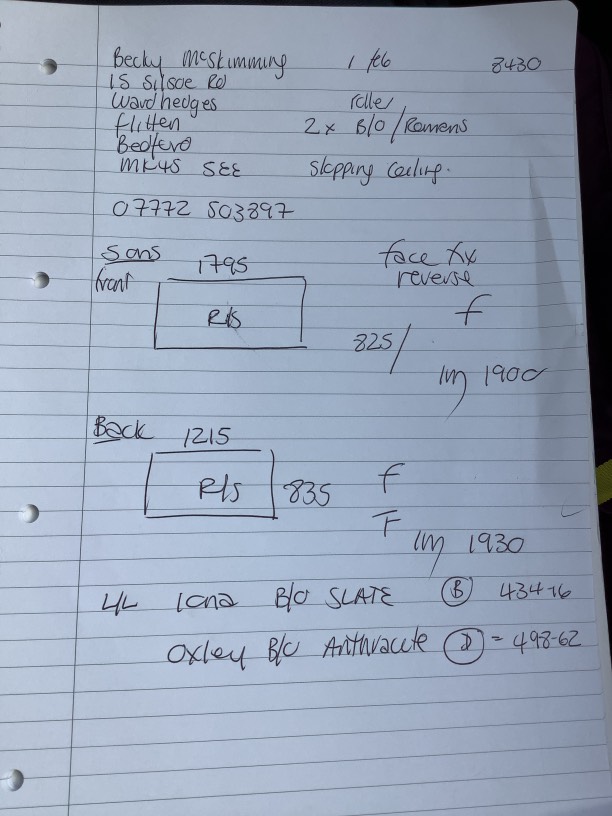 Becky McSkimming 1 feb 8430
15 Silsoe Rd
Wardhedges roller
flitten 2 x B/O / Romens
Bedford
MK45 5EE Slopping Ceiling.
07772 503897
Sons 1795 face fix
front reverse
R/S f
825/
1m 1900
Back 1215
R/S 835 f
F
1m 1930
L/L Iona B/O SLATE B 434-16
Oxley B/O Anthracite D = 498-62